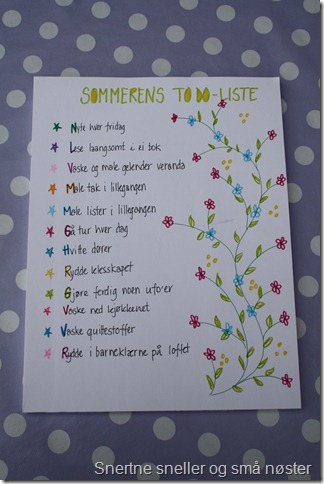 SOMMERENS TO DO-LISTE
Nyte hver fridag
Lese langsomt i ei bok
Vaske og male gelender veranda
Male tak i lillegangen
Male lister i lillegangen
Gå tur hver dag
Hvitte dører
Rydde klesskapet
Gjøre ferdig noen ufoer
Vaske ned kjøkkenet
Vaske quiltestoffer
Rydde i barneklærne på loftet
Snertne sneller og små nøster